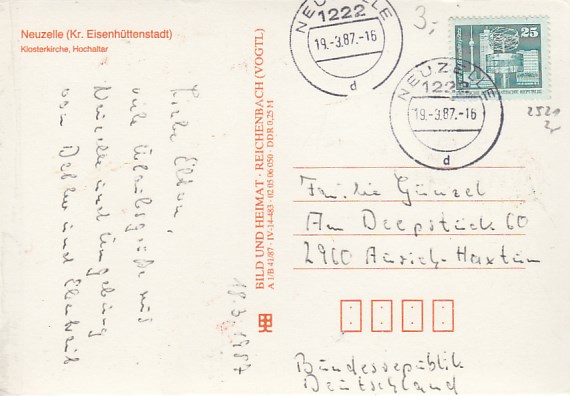 Neuzelle (Kr. Eisenhüttenstadt)
Klosterkirche, Hochaltar
NEUZELLE
1222
19.-3.87.-16
d
3,-
25
NEUZELLE
1222
19.-3.87.-16
d
2521
Liebe Eltern,
viele Urlaubsgrüße aus
Neuzelle und Umgebung
von Detlev und
18.3.1987
BILD UND HEIMAT · REICHENBACH (VOGTL)
A 1/B 41/87 · IV-14-483 · 02 05 06 050 · DDR 0,25 M
Familie Günzel
Am Deepstück 60
2960 Aurich-Haxtum
Bundesrepublik
Deutschland